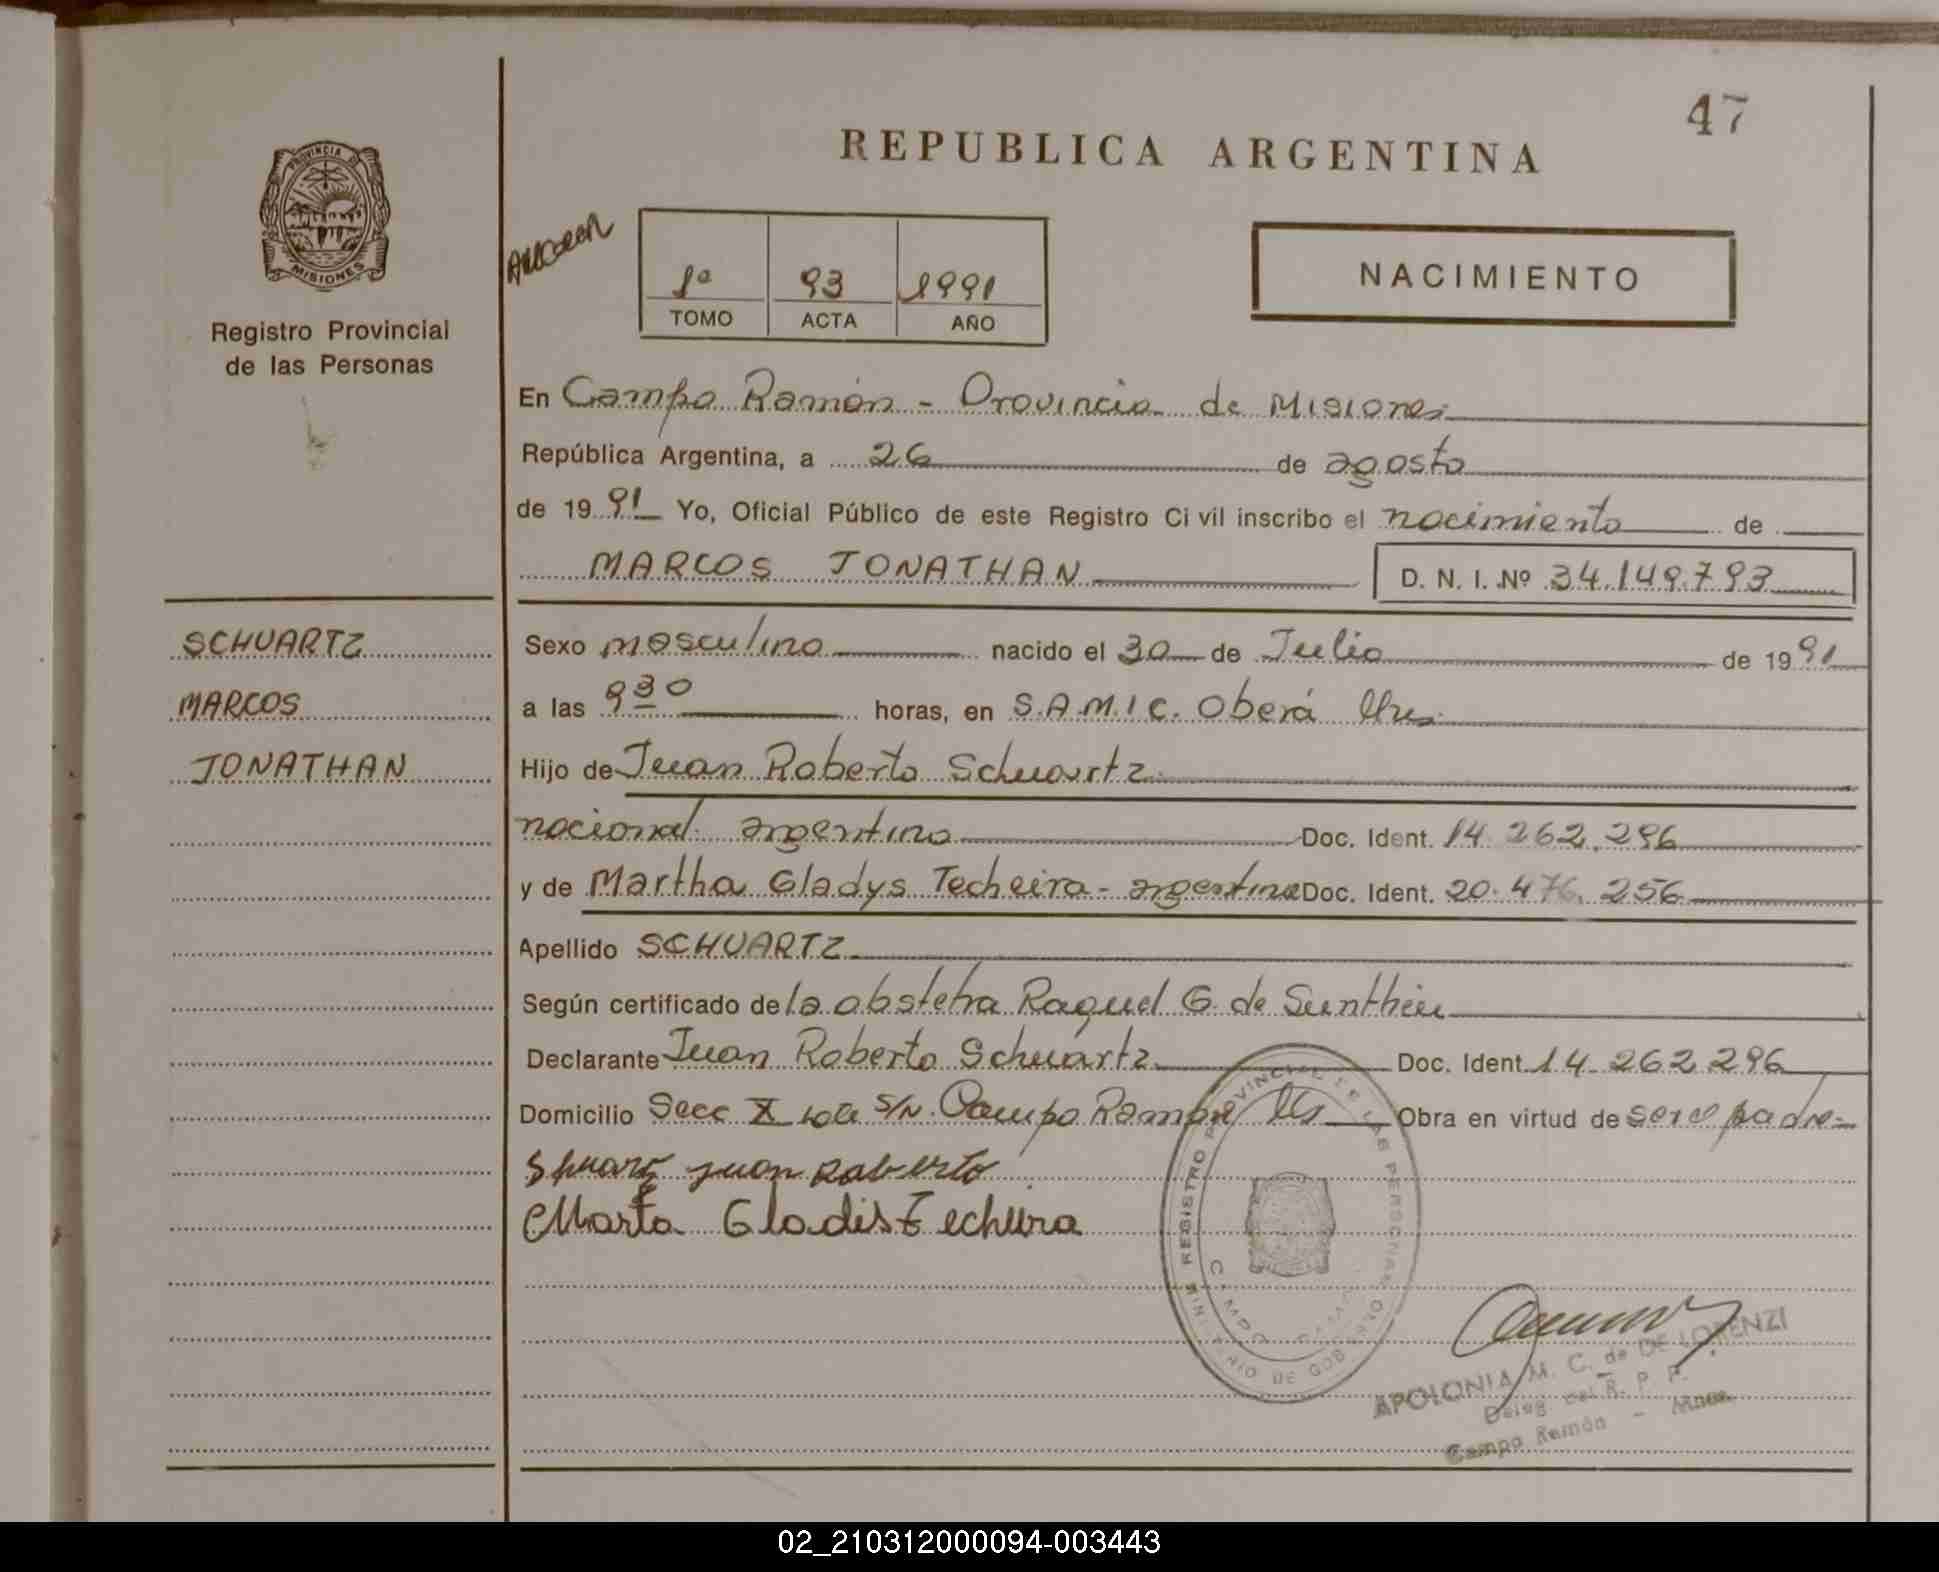 47
REPUBLICA ARGENTINA
PROVINCIA DE
MISIONES
Registro Provincial
de las Personas
1º 93 1991
TOMO ACTA AÑO
NACIMIENTO
En Campo Ramón - Provincia de Misiones
República Argentina, a 26 de agosto
de 1991 Yo, Oficial Público de este Registro Civil inscribo el nacimiento de
MARCOS JONATHAN D. N. I. Nº 34.149.793
SCHUARTZ
MARCOS
JONATHAN
Sexo masculino nacido el 30 de Julio de 1991
a las 930 horas, en S.A.M.I.C. Oberá Mnes
Hijo de Juan Roberto Schuartz
nacional argentino Doc. Ident. 14.262.296
y de Martha Gladys Techeira - argentina Doc. Ident. 20.476.256
Apellido SCHUARTZ
Según certificado de la obstetra Raquel G. de
Declarante Juan Roberto Schuartz Doc. Ident. 14.262.296
Domicilio Secc X lote S/N. Campo Ramón Ms Obra en virtud de ser el padre
juan Roberto
Marta Gladis Techeira
REGISTRO PROVINCIAL DE LAS PERSONAS
MINISTERIO DE GOBIERNO
CAMPO RAMON
APOLONIA M. C. de DE LORENZI
Deleg. del R. P. P.
Campo Ramón - Mnes.
02_210312000094-003443